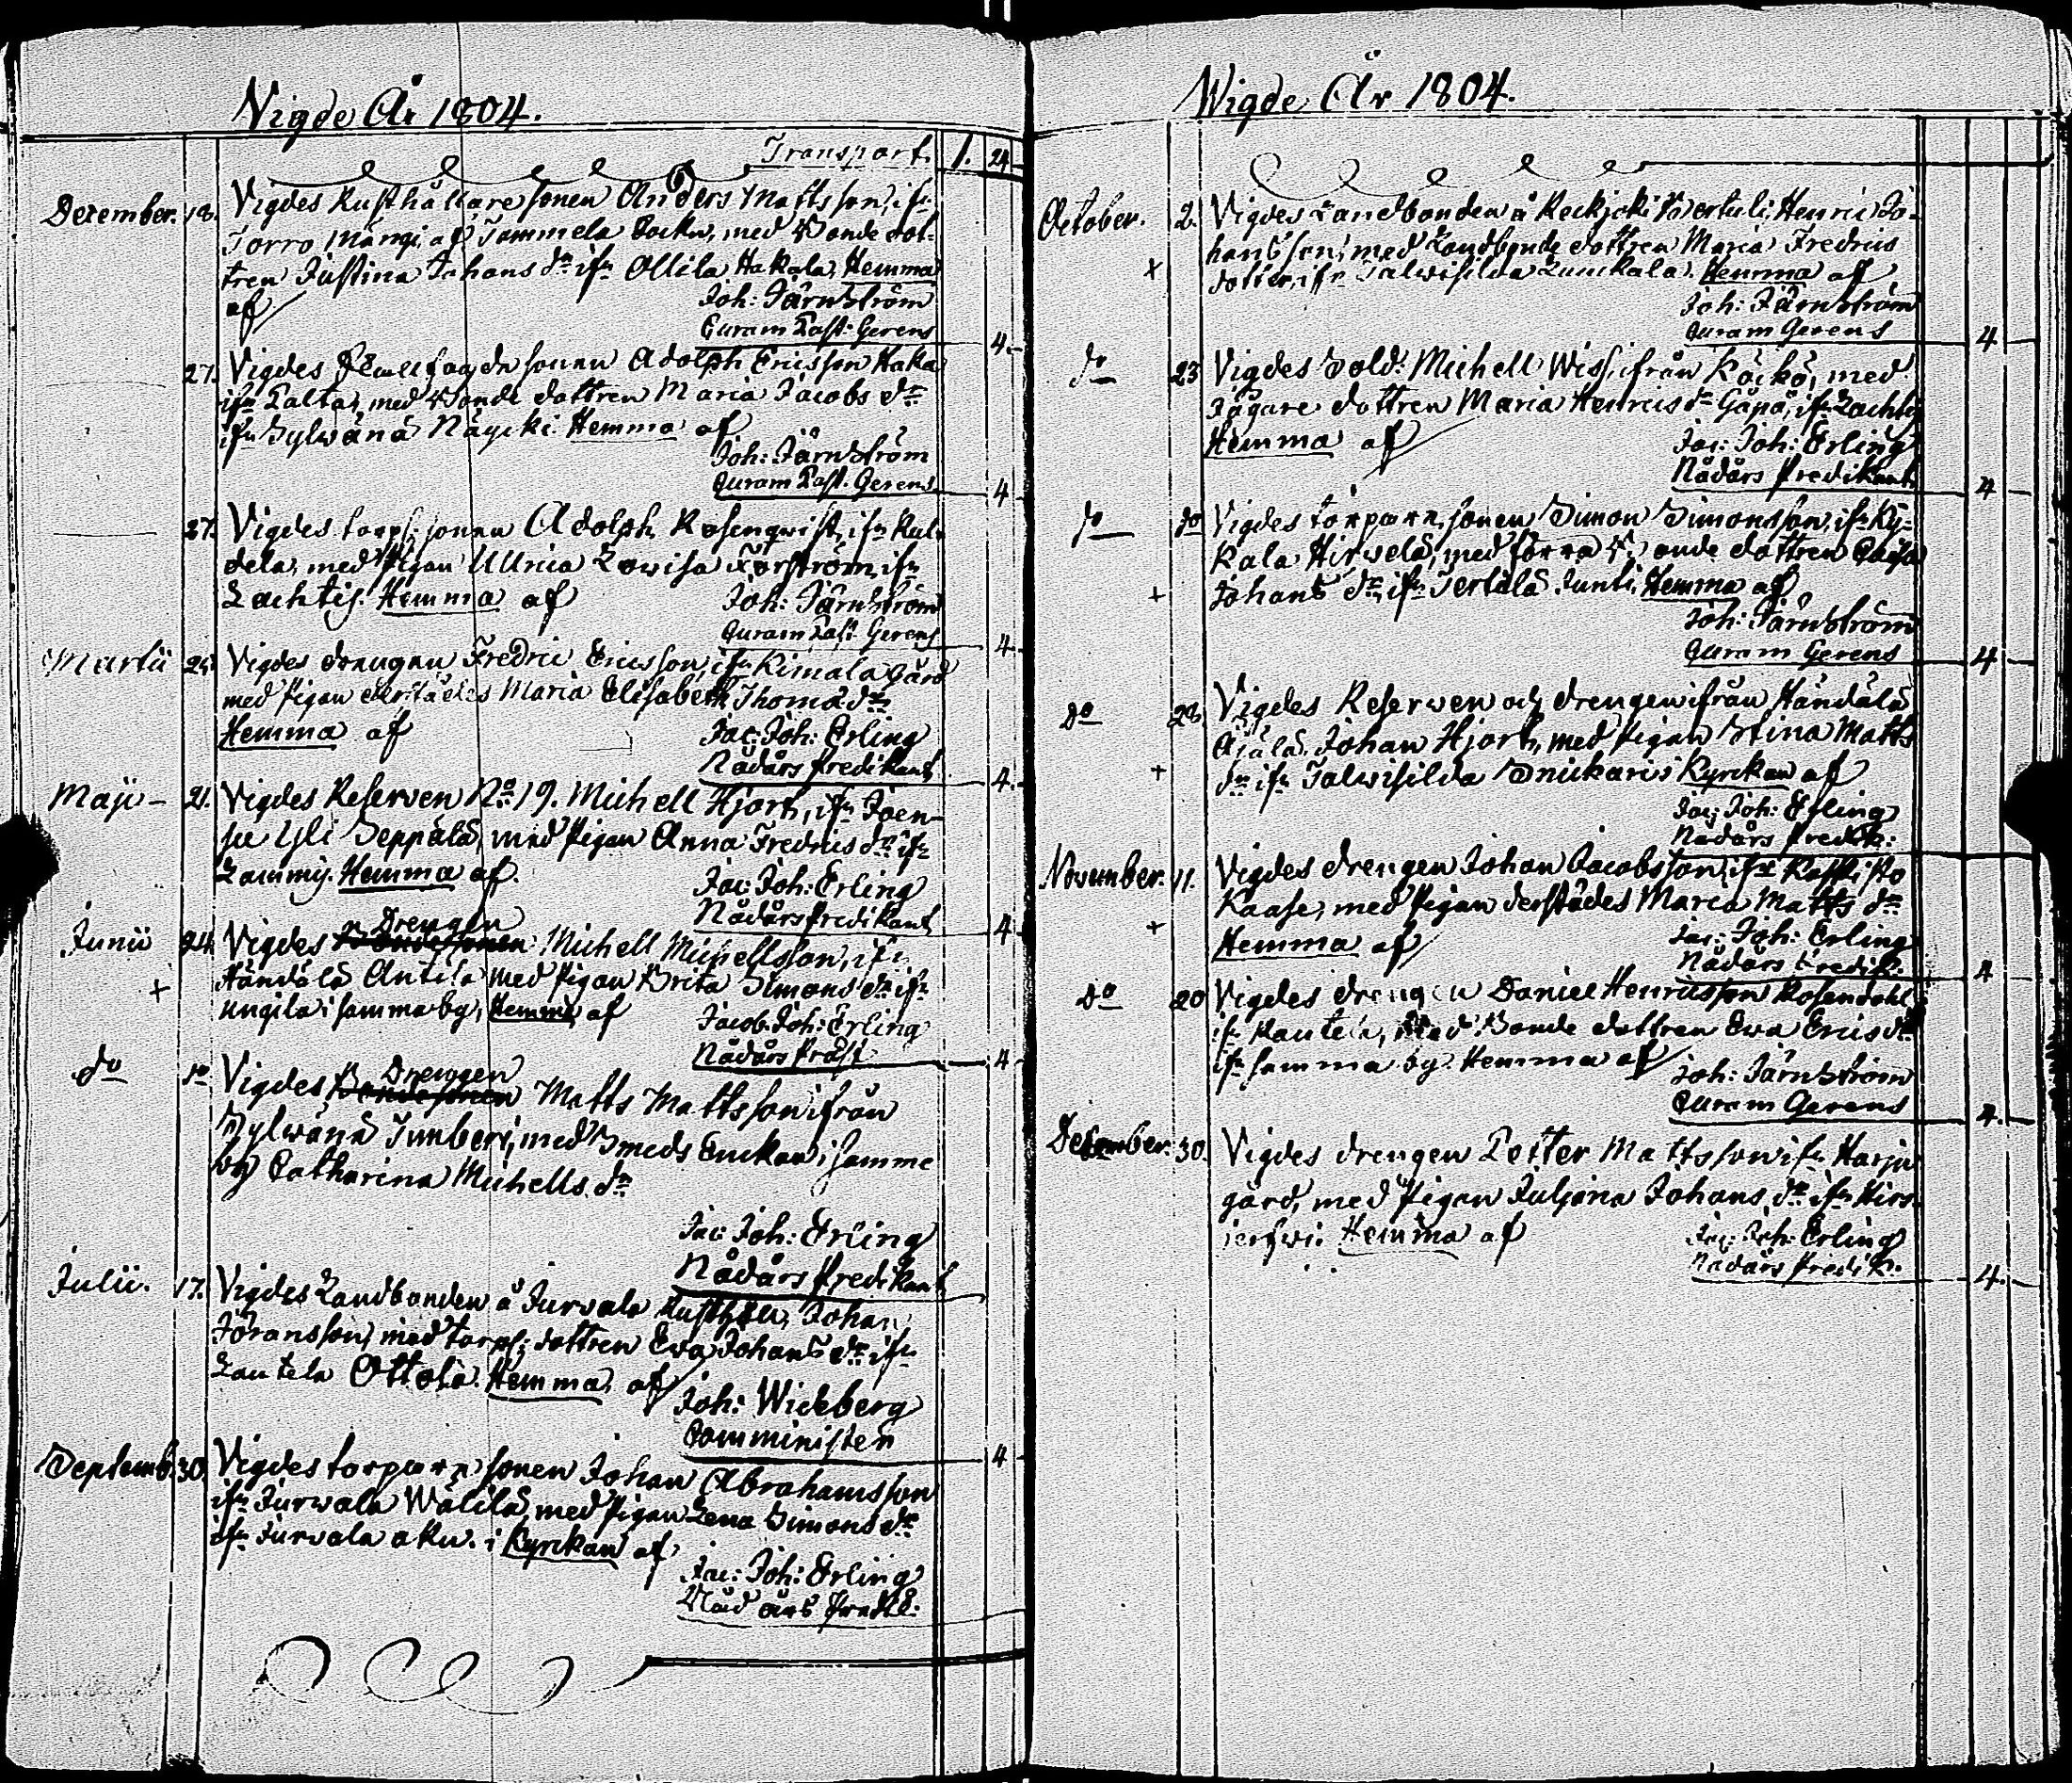 Vigde År 1804.
Transport. 1. 24
December. 18. Vigdes Rusthållare sonen Anders Mattsson, ifr.
Torro Mängi, af Tammela Sockn, med Bonde dot-
tren Justina Johans dr ifr Ollila Hakala, Hemma
af
Joh: Järnström
Curam Past. Gerens
4.
27. Vigdes sonen Adolph Ericsson Haka
ifr Palta, med Bonde dottren Maria Jacobs dr
ifr Sylwänä Näycki. Hemma af
Joh: Järnström
Curam Past. Gerens
4
27. Vigdes torp: sonen Adolph Rosenqwist, ifr Kul-
dela, med Pigan Ullrica Lowisa Forström, ifr
Lachtis. Hemma af
Joh: Järnström
Curam Past. Gerens
4
Martii 25. Vigdes drengen Fredric Ericsson, ifr Kimala gård
med Pigan derstädes Maria Elisabeth Thomæ dr
Hemma af
Jac: Joh: Erling
Nådårs Predikant
4.
Maji - 21. Vigdes Reserven No 19. Michell Hjort, ifr Joen-
su Yli Seppälä, med Pigan Anna Fredrics dr ifr
Lammij. Hemma af.
Jac: Joh: Erling
Nådårs Predikant
4
Drengen
Junii 24. Vigdes Bondesonen Michell Michellsson, ifr
+ Händälä Antila med Pigan Brita Simons dr ifr
Ungila i samma by, Hemma af
Jacob Joh: Erling
Nådårs Präst
4
Drengen
do do Vigdes Bondesonen Matts Mattsson ifrån
Sylwänä Timberi, med Smeds Enckan i samme
by Catharina Michells dr
Jac: Joh: Erling
Nådårs Predikant
Julii. 17. Vigdes Landbonden å Jurvala Johan
Jöransson, med torp: dottren Eva Johans dr ifr
Lautela Ottola. Hemma af
Joh: Wickberg
Comminister
4
Septemb. 30. Vigdes torparesonen Johan Abrahamsson
ifr Jurwala Wälilä, med Pigan Lena Simons dr
ifr Jurvala i Kyrckan af
Jac: Joh: Erling
Nåd års
Wigde År 1804.
October. 2. Vigdes Landbonden å Reckjoki Henric Jo-
hansson, med Landbonde dottren Maria Fredrics
+ dotter, ifr Talwisilda Lunckala. Hemma af
Joh: Järnström
Curam Gerens
4
do 23 Vigdes Sold: Michell Wiss, ifrån Köickö, med
Jägare dottren Maria Henrics dr Göpä, ifr Lachtis
Hemma af
Jac: Joh: Erling
Nådårs Predikant
4
do do Vigdes torpare sonen Simon Simonsson, ifr Ky-
kala Hirvelä, med förra Bonde dottren
+ Johans dr, ifr Tertilä Junti, Hemma af
Joh: Järnström
Curam Gerens
4
Do 28. Vigdes Reserven och drengen ifrån Händälä
Äjälä, Johan Hjort, med Pigan Stina Matts
+ dr ifr Talwisilda Snickaris Kyrckan af
Jac: Joh: Erling
Nådårs Predik:
November. 11. Vigdes drengen Johan Jacobsson, ifr Kaskisto
Kaase, med Pigan derstädes Maria Matts dr
+ Hemma af
Jac: Joh: Erling
Nådårs Predik.
4
Do 20 Vigdes drengen Daniel Henricsson Rosendahl
ifr Rautela, med Bonde dottren Ewa Erics dr
ifr samma by. Hemma af
Joh: Järnström
Curam Gerens
4.
December. 30. Vigdes drengen Petter Mattsson ifr Harju
gård, med Pigan Juljana Johans dr ifr Hirs-
jerfwi. Hemma af
Jac: Joh: Erling
Nådårs Predik.
4.